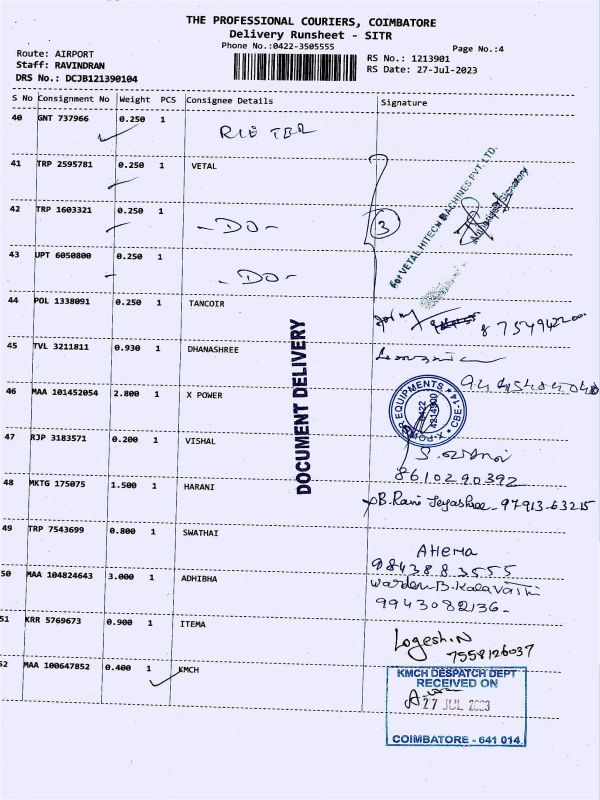 THE PROFESSIONAL COURIERS, COIMBATORE
Delivery Runsheet - SITR
Phone No.:0422-3505555
Page No.:4
Route: AIRPORT
Staff: RAVINDRAN
DRS No.: DCJB121390104
RS No.: 1213901
RS Date: 27-Jul-2023
S No Consignment No Weight PCS Consignee Details Signature
40 GNT 737966 0.250 1 RIETER
41 TRP 2595781 0.250 1 VETAL
For VETAL HITECH MACHINES PVT. LTD.
Authorised Signatory
42 TRP 1603321 0.250 1 -DO- 3
43 UPT 6050800 0.250 1 -DO-
44 POL 1338091 0.250 1 TANCOIR
45 TVL 3211811 0.930 1 DHANASHREE
DOCUMENT DELIVERY
46 MAA 101452054 2.800 1 X POWER
X-POWER EQUIPMENTS * CBE-14 *
0422
4214900
47 RJP 3183571 0.200 1 VISHAL
8610290392
48 MKTG 175075 1.500 1 HARANI B. Rani Jeyashree - 97913-63215
49 TRP 7543699 0.800 1 SWATHAI
9843883555
50 MAA 104824643 3.000 1 ADHIBHA Warden B. Kalavathi
9943082136-
51 KRR 5769673 0.900 1 ITEMA Logesh.N
7558126037
52 MAA 100647852 0.400 1 KMCH
KMCH DESPATCH DEPT
RECEIVED ON
27 JUL 2023
COIMBATORE - 641 014.